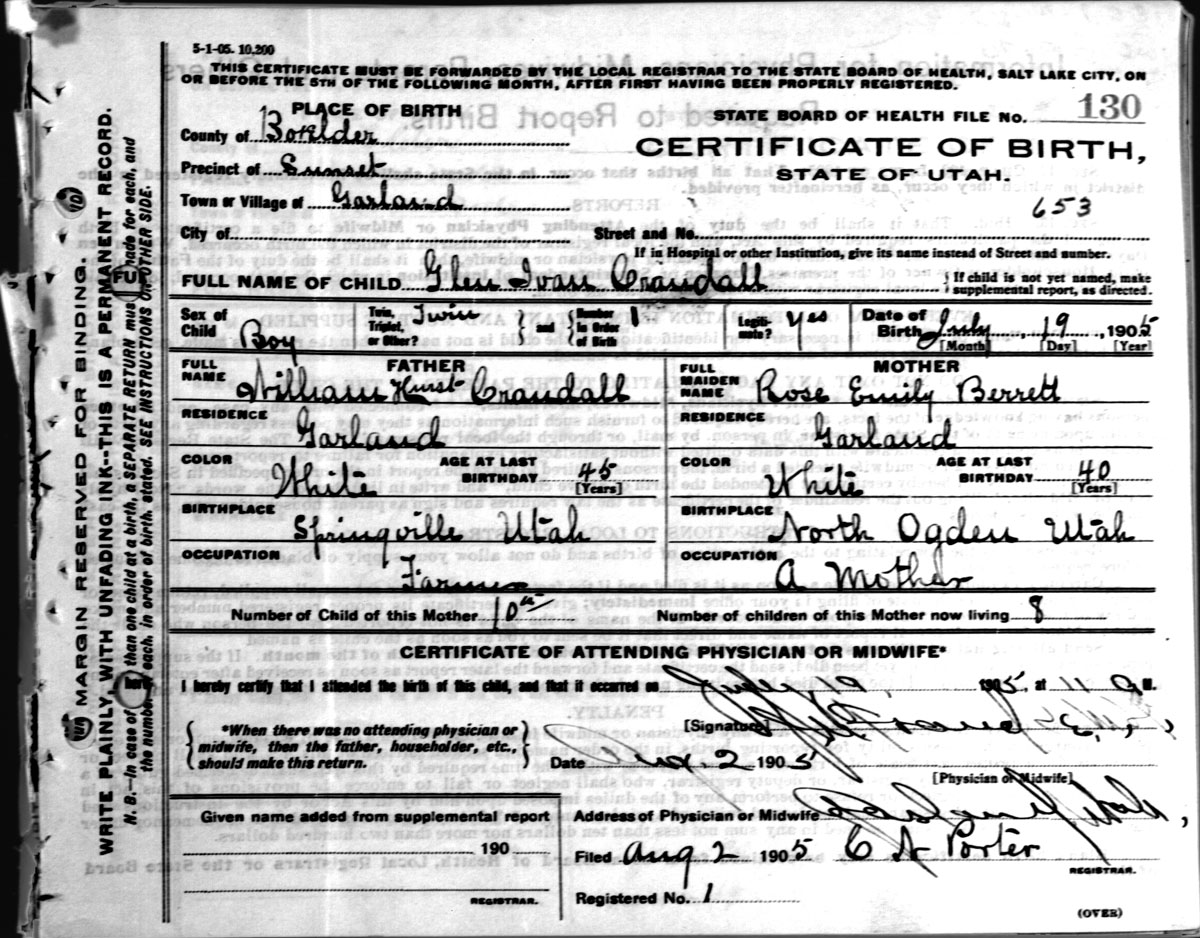 5-1-05. 10,200
THIS CERTIFICATE MUST BE FORWARDED BY THE LOCAL REGISTRAR TO THE STATE BOARD OF HEALTH, SALT LAKE CITY, ON
OR BEFORE THE 5TH OF THE FOLLOWING MONTH, AFTER FIRST HAVING BEEN PROPERLY REGISTERED.
PLACE OF BIRTH
STATE BOARD OF HEALTH FILE No. 130
County of Boxelder
CERTIFICATE OF BIRTH,
Precinct of Sunset
STATE OF UTAH.
Town or Village of Garland
653
City of Street and No.
If in Hospital or other Institution, give its name instead of Street and number.
FULL NAME OF CHILD Glen Ivan Crandall { If child is not yet named, make supplemental report, as directed.
Sex of Child Boy Twin, Triplet, or Other? Twin { and } Number in Order of Birth 1 Legitimate? Yes Date of Birth July 19, 1905
[Month] [Day] [Year]
FATHER MOTHER
FULL NAME William Hurst Crandall FULL MAIDEN NAME Rose Emily Berrett
RESIDENCE Garland RESIDENCE Garland
COLOR White AGE AT LAST BIRTHDAY 45 [Years] COLOR White AGE AT LAST BIRTHDAY 40 [Years]
BIRTHPLACE Springville Utah BIRTHPLACE North Ogden Utah
OCCUPATION Farmer OCCUPATION A Mother
Number of Child of this Mother 10th Number of children of this Mother now living 8
CERTIFICATE OF ATTENDING PHYSICIAN OR MIDWIFE*
I hereby certify that I attended the birth of this child, and that it occurred on July 19, 1905, at 11 a M.
*When there was no attending physician or midwife, then the father, householder, etc., should make this return.
[Signature]
Date Aug. 2 1905
[Physician or Midwife]
Given name added from supplemental report
Address of Physician or Midwife Garland Utah,
190
Filed Aug 2 1905 C A Porter
REGISTRAR.
REGISTRAR.
Registered No. 1
(OVER)
MARGIN RESERVED FOR BINDING.
WRITE PLAINLY, WITH UNFADING INK--THIS IS A PERMANENT RECORD.
N. B.—In case of more than one child at a birth, a SEPARATE RETURN must be made for each, and
the number of each, in order of birth, stated. SEE INSTRUCTIONS ON OTHER SIDE.